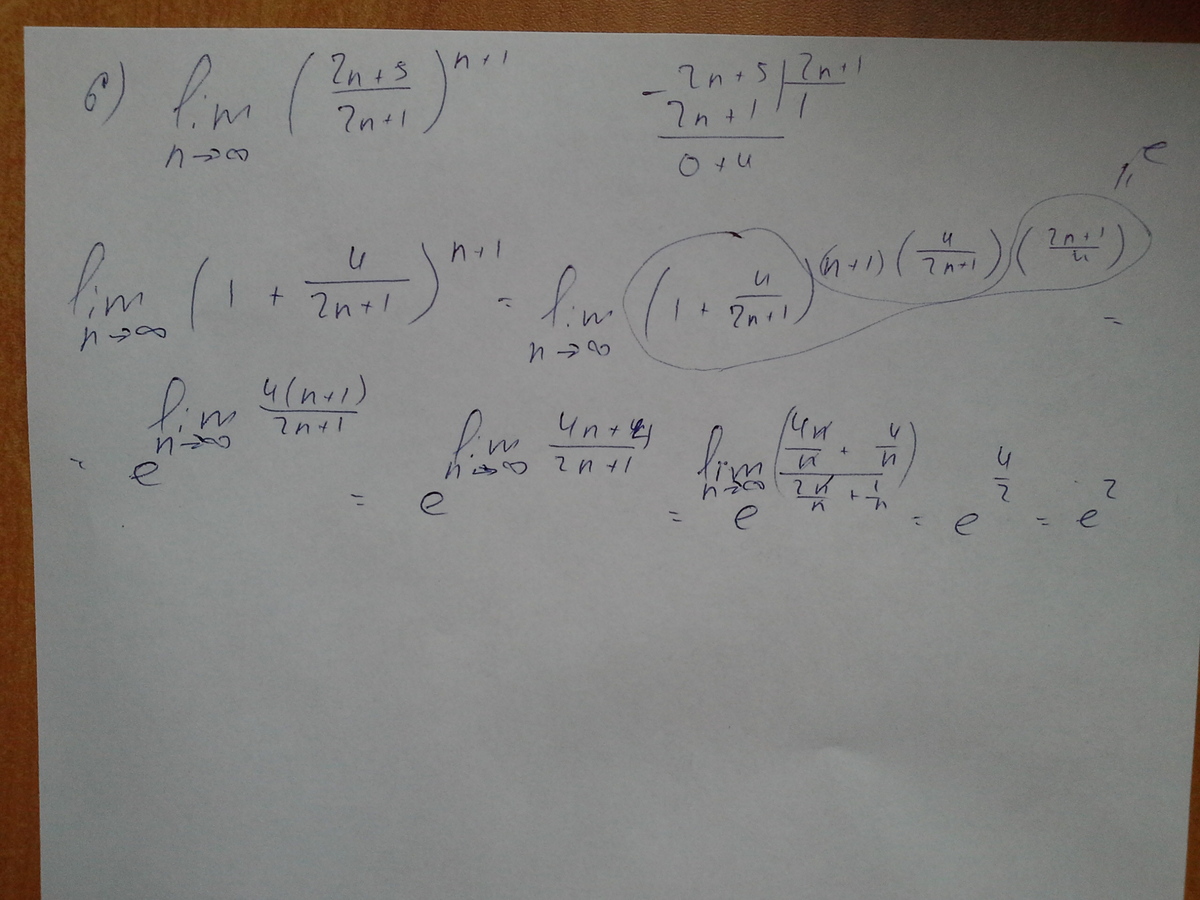 б) lim n→∞ ((2n+5)/(2n+1))^(n+1)
- 2n+5 | 2n+1
2n+1 | 1
0+4
lim n→∞ (1 + 4/(2n+1))^(n+1) = lim n→∞ (1 + 4/(2n+1))^((n+1)(4/(2n+1))((2n+1)/4)) =
= e
= e^(lim n→∞ 4(n+1)/(2n+1)) = e^(lim n→∞ (4n+4)/(2n+1)) = e^(lim n→∞ ((4n/n + 4/n)/(2n/n + 1/n))) = e^(4/2) = e^2